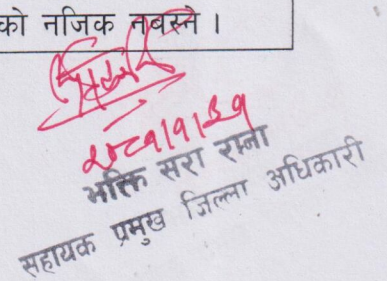 को नजिक नबस्ने ।
२०८१।१।३१
भक्ति सरा राना
सहायक प्रमुख जिल्ला अधिकारी